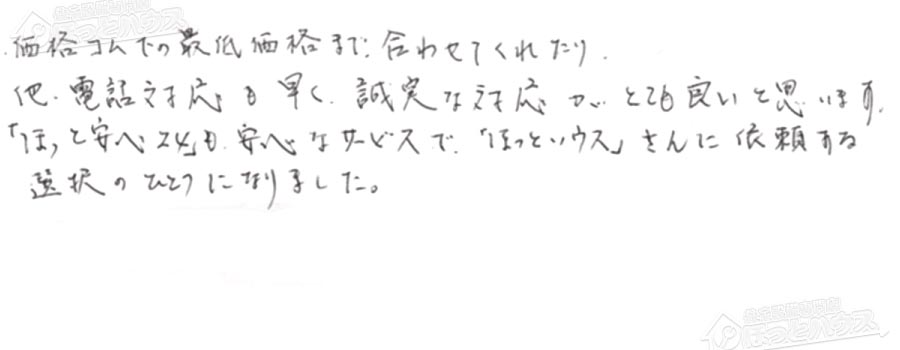 価格コムでの最低価格まで合わせてくれたり、
他、電話対応も早く、誠実な対応がとても良いと思います。
「ほっと安心24」も安心なサービスで、「ほっとハウス」さんに依頼する
選択のひとつになりました。
ほっとハウス
ほっとハウス